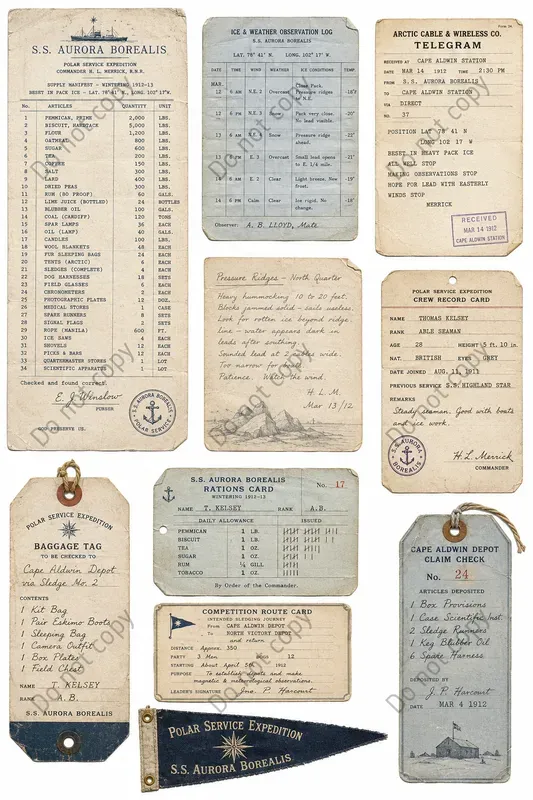 S.S. AURORA BOREALIS
POLAR SERVICE EXPEDITION
COMMANDER H. L. MERRICK, R.N.R.
SUPPLY MANIFEST - WINTERING 1912-13
BESET IN PACK ICE - LAT. 78°41'N., LONG. 102°17'W.
No. ARTICLES QUANTITY UNIT
1 PEMMICAN, PRIME 2,000 LBS.
2 BISCUIT, HARDTACK 5,000 LBS.
3 FLOUR 1,200 LBS.
4 OATMEAL 800 LBS.
5 SUGAR 600 LBS.
6 TEA 200 LBS.
7 COFFEE 150 LBS.
8 SALT 300 LBS.
9 LARD 400 LBS.
10 DRIED PEAS 300 LBS.
11 RUM (80 PROOF) 60 GALS.
12 LIME JUICE (BOTTLED) 24 BOTTLES
13 BLUBBER OIL 100 GALS.
14 COAL (CARDIFF) 120 TONS
15 SPAR LAMPS 36 EACH
16 OIL (LAMP) 40 GALS.
17 CANDLES 100 LBS.
18 WOOL BLANKETS 48 EACH
19 FUR SLEEPING BAGS 24 EACH
20 TENTS (ARCTIC) 6 EACH
21 SLEDGES (COMPLETE) 4 EACH
22 DOG HARNESSES 18 SETS
23 FIELD GLASSES 6 EACH
24 CHRONOMETERS 2 EACH
25 PHOTOGRAPHIC PLATES 12 DOZ.
26 MEDICAL STORES 1 CASE
27 SPARE RUNNERS 8 SETS
28 SIGNAL FLAGS 2 SETS
29 ROPE (MANILA) 600 FT.
30 ICE SAWS 4 EACH
31 SHOVELS 12 EACH
32 PICKS & BARS 12 EACH
33 QUARTERMASTER STORES 1 LOT
34 SCIENTIFIC APPARATUS 1 LOT
Checked and found correct.
E. J. Winslow
PURSER
GOD PRESERVE US.
S.S. AURORA BOREALIS
POLAR SERVICE
ICE & WEATHER OBSERVATION LOG
S.S. AURORA BOREALIS
LAT. 78° 41' N. LONG. 102° 17' W.
DATE TIME WIND WEATHER ICE CONDITIONS TEMP.
MAR.
12 6 AM N.E. 2 Overcast Close Pack. Pressure ridges to N.E. -18°F
12 Snow Pack very close. No lead visible. -20°
13 6 AM N.E. 4 Snow Pressure ridge ahead. -22°
13 PM E. 3 Overcast Small lead opens to E. 1/4 mile. -21°
14 6 AM E. 2 Clear Light breeze. New frost. -19°
14 6 PM Calm Clear Ice rigid. No change. -18°
Observer: A. B. LLOYD, Mate.
ARCTIC CABLE & WIRELESS CO.
TELEGRAM
RECEIVED AT CAPE ALDWIN STATION
DATE MAR 14 1912 TIME 2:30 PM
FROM S.S. AURORA BOREALIS
TO CAPE ALDWIN STATION
VIA DIRECT
NO. 37
POSITION LAT 78° 41 N
LONG 102 17 W
BESET IN HEAVY PACK ICE
ALL WELL STOP
MAKING OBSERVATIONS STOP
HOPE FOR LEAD WITH EASTERLY
WINDS STOP
MERRICK
RECEIVED
MAR 14 1912
CAPE ALDWIN STATION
Pressure Ridges - North Quarter
Heavy hummocking 10 to 20 feet.
Blocks jammed solid - sails useless.
Look for rotten ice beyond ridge
line - water appears dark in
leads after southing.
Sounded lead at 2 cables wide.
Too narrow for
Patience. Watch the wind.
H. L. M.
Mar 13/12
POLAR SERVICE EXPEDITION
CREW RECORD CARD
NAME THOMAS KELSEY
RANK ABLE SEAMAN
AGE 28 HEIGHT 5 ft. 10 in.
NAT. BRITISH EYES GREY
DATE JOINED AUG. 11, 1911
PREVIOUS SERVICE S.S. HIGHLAND STAR
REMARKS
Steady seaman. Good with boats
and ice work.
S.S. AURORA BOREALIS
H.L. Merrick
COMMANDER
POLAR SERVICE EXPEDITION
BAGGAGE TAG
TO BE CHECKED TO
Cape Aldwin Depot
via Sledge No. 2
CONTENTS
1 Kit Bag
1 Pair Eskimo Boots
1 Sleeping Bag
1 Camera Outfit
1 Box Plates
1 Field Chest
NAME T. KELSEY
RANK A. B.
S.S. AURORA BOREALIS
S.S. AURORA BOREALIS
RATIONS CARD
WINTERING 1912-13
No. 17
NAME T. KELSEY RANK A.B.
DAILY ALLOWANCE ISSUED
PEMMICAN 1 LB.
BISCUIT 1 LB.
TEA 1 OZ.
SUGAR 2 OZ.
RUM ¼ GILL
TOBACCO 1 OZ.
By Order of the Commander.
COMPETITION ROUTE CARD
INTENDED SLEDGING JOURNEY
From CAPE ALDWIN DEPOT
To NORTH VICTORY DEPOT
and return
DISTANCE Approx. 350
PARTY 3 Men 12
STARTING About April 5th 1912
PURPOSE To establish depots and make
magnetic & meteorological observations.
LEADER'S SIGNATURE Jno. P. Harcourt
POLAR SERVICE EXPEDITION
S.S. AURORA BOREALIS
CAPE ALDWIN DEPOT
CLAIM CHECK
No. 24
ARTICLES DEPOSITED
1 Box Provisions
1 Case Scientific Inst.
2 Sledge Runners
1 Keg Blubber Oil
6 Spare Harness
DEPOSITED BY
J. P. Harcourt
DATE MAR 4 1912
Do not copy
Do not copy
Do not copy
Do not copy
Do not copy
Do not copy
Do not copy
Do not copy
Do not copy